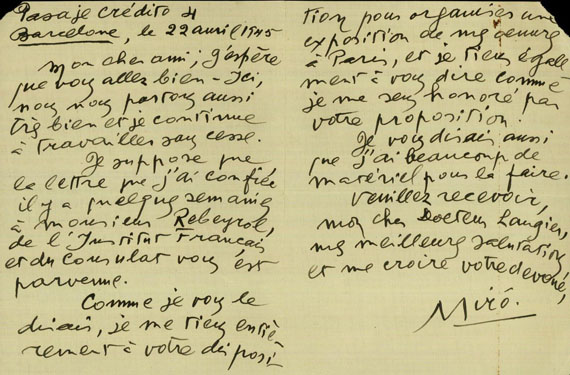 Pasaje crédito 4
Barcelone, le 22 avril 1945
Mon cher ami; j'espère
que vous allez bien - Ici,
nous nous portons aussi
très bien et je continue
à travailler sans cesse.
Je suppose que
la lettre que j'ai confiée
il y a quelques semaines
à monsieur Rebeyrol,
de l'Institut Français
et du Consulat vous est
parvenue.
Comme je vous le
disais, je me tiens entiè-
rement à votre disposi-
tion pour organiser une
exposition de mes oeuvres
à Paris, et je tiens égale-
ment à vous dire comme
je me sens honoré par
votre proposition.
Je vous disais aussi
que j'ai beaucoup de
matériel pour la faire.
Veuillez recevoir,
mon cher Docteur Laugier,
mes meilleures salutations
et me croire votre dévoué,
Miró.